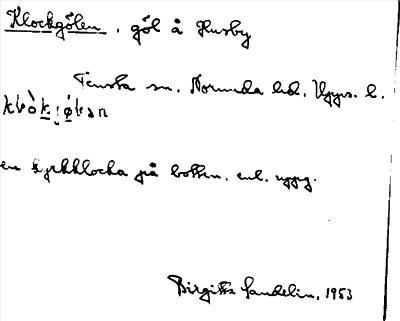 Klockgölen, göl å Husby
Tensta sn. Norunda hd. Upps. l.
en kyrkklocka på botten, enl. uppg.
Birgitta Sandelin, 1953